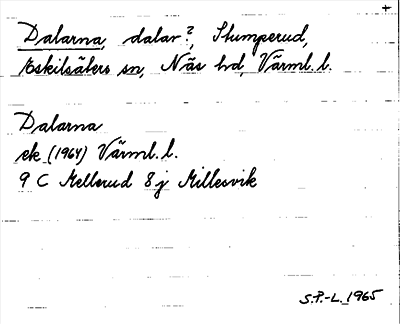 Dalarna, dalar?, Stumperud,
Eskilsäters sn, Näs hd, Värml. l.
Dalarna
ek (1964) Värml. l.
9 C Mellerud 8j Millesvik
S.P.-L. 1965